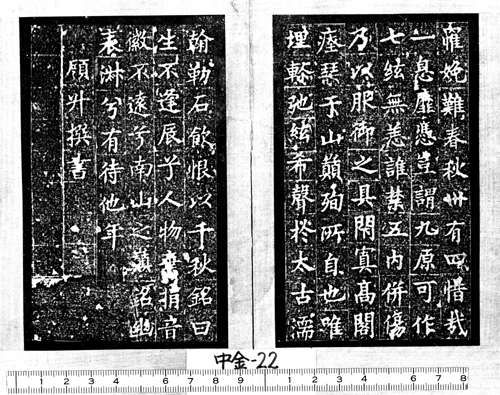 罹娩難春秋卅有四惜哉
一息靡憑豈謂九原可作
七絃無恙誰葉五內併傷
乃以服御之具閑真高閣
瘞琴于山巔殉所自也唯
埋弛絃希聲終太古濡
翰勒石飲恨以千秋銘曰
生不逢辰兮人物捐音
徽不遠兮南山之巔銘幽
表兮有待他年
顧升撰書
中金-22
1 2 3 4 5 6 7 8 9 1 2 3 4 5 6 7 8